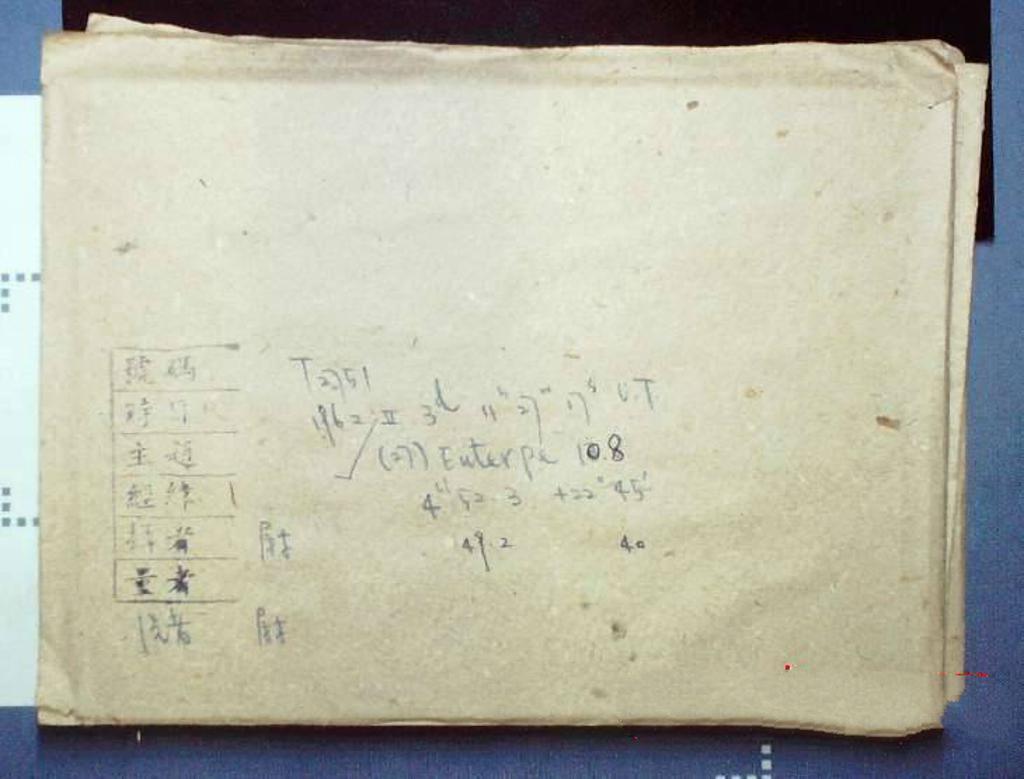 號碼 T2751
時刻 1962 II 3d 11h 27m 17s U.T
主題 (27) Euterpe 10.8
經緯 4h 52.3 +22° 45'
者 49.2 40
量者
者